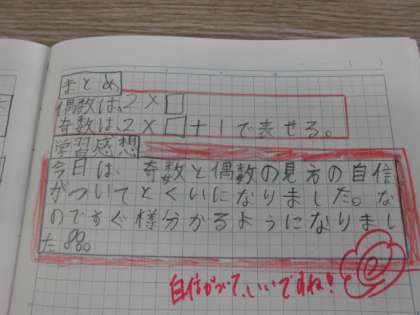 まとめ
偶数は、2×□
奇数は、2×□+1で表せる。
学習感想
今日は、奇数と偶数の見方の自信
がついてとくいになりました。な
のですぐ様分かるようになりまし
た。
自信がついて、いいですね!